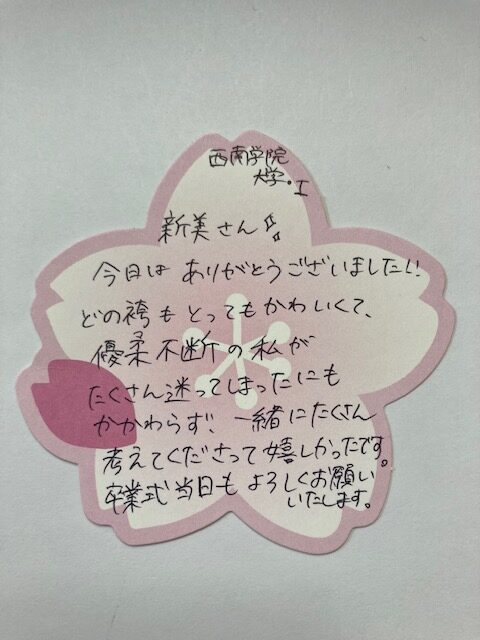 西南学院
大学・I
新美さん!!
今日は ありがとうございました!!
どの袴もとってもかわいくて、
優柔不断の私が
たくさん迷ってしまったにも
かかわらず、一緒にたくさん
考えてくださって嬉しかったです。
卒業式当日もよろしくお願い
いたします。